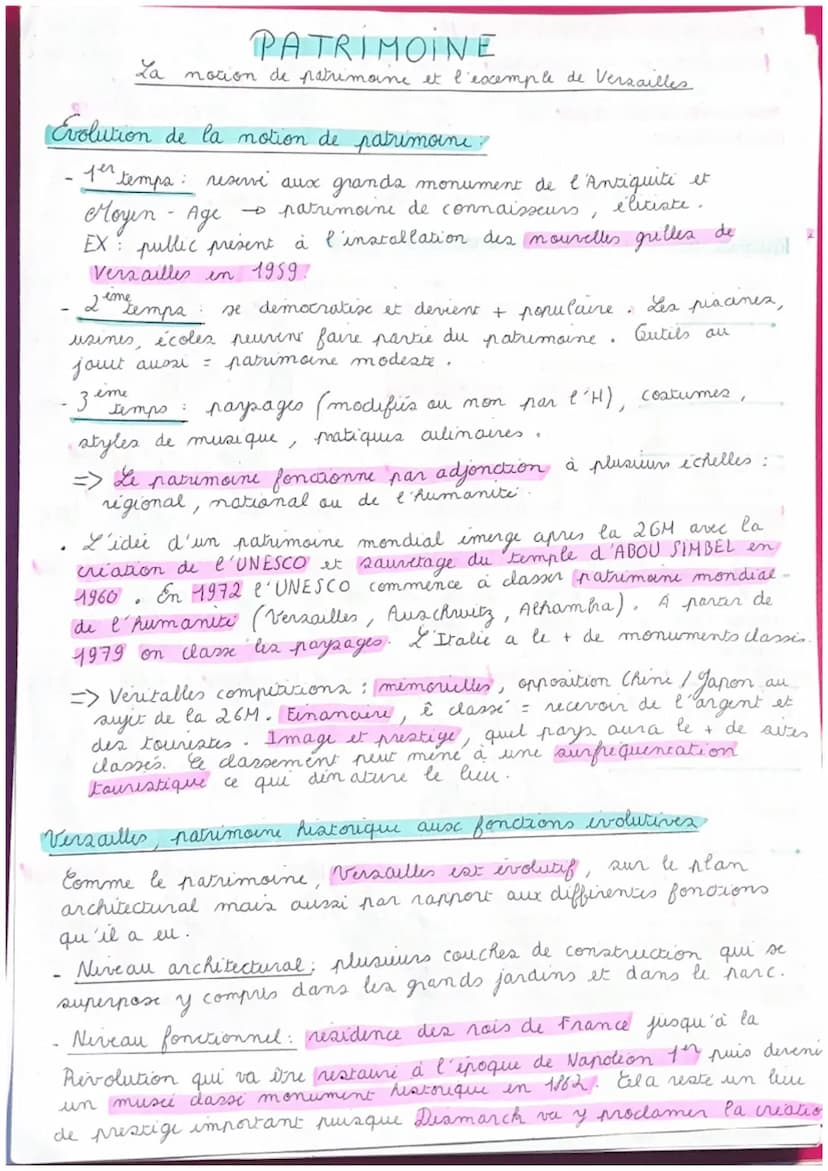 PATRIMOINE
La notion de patrimoine et l'exemple de Versailles
Evolution de la notion de patrimoine :
- 1er temps : reservé aux grands monument de l'Antiquité et
Moyen-Age → patrimoine de connaisseurs, élitiste.
EX : public présent à l'installation des nouvelles grilles de
Versailles en 1959.
- 2ème temps : se democratise et devient + populaire. Les piscines,
usines, écoles peuvent faire partie du patrimoine. Outils ou
jouit aussi = patrimoine modeste.
- 3ème temps : paysages (modifiés ou non par l'H), costumes,
styles de musique, pratiques culinaires.
=> Le patrimoine fonctionne par adjonction à plusieurs échelles :
régional, national ou de l'humanité.
• L'idée d'un patrimoine mondial émerge apres la 2GM avec la
création de l'UNESCO et sauvetage du temple d'ABOU SIMBEL en
1960. En 1972 l'UNESCO commence à classer patrimoine mondial
de l'humanité (Versailles, Auschwitz, Alhambra). A partir de
1979 on classe les paysages. L'Italie a le + de monuments classés.
=> Véritables compétitions : mémorielles, opposition Chine / Japon au
sujet de la 2GM. Financière, ê classé = recevoir de l'argent et
des touristes. Image et prestige, quel pays aura le + de sites
classés. Le classement peut mené à une surfréquentation
touristique ce qui dénature le lieu.
Versailles, patrimoine historique aux fonctions évolutives
Comme le patrimoine, Versailles est évolutif, sur le plan
architectural mais aussi par rapport aux différentes fonctions
qu'il a eu.
- Niveau architectural : plusieurs couches de construction qui se
superpose y compris dans les grands jardins et dans le parc.
- Niveau fonctionnel : résidence des rois de France jusqu'à la
Révolution qui va être restauré à l'époque de Napoléon 1er puis deveni
un musée classé monument historique en 1862. Cela reste un lieu
de prestige important puisque Bismarck va y proclamer la créatio